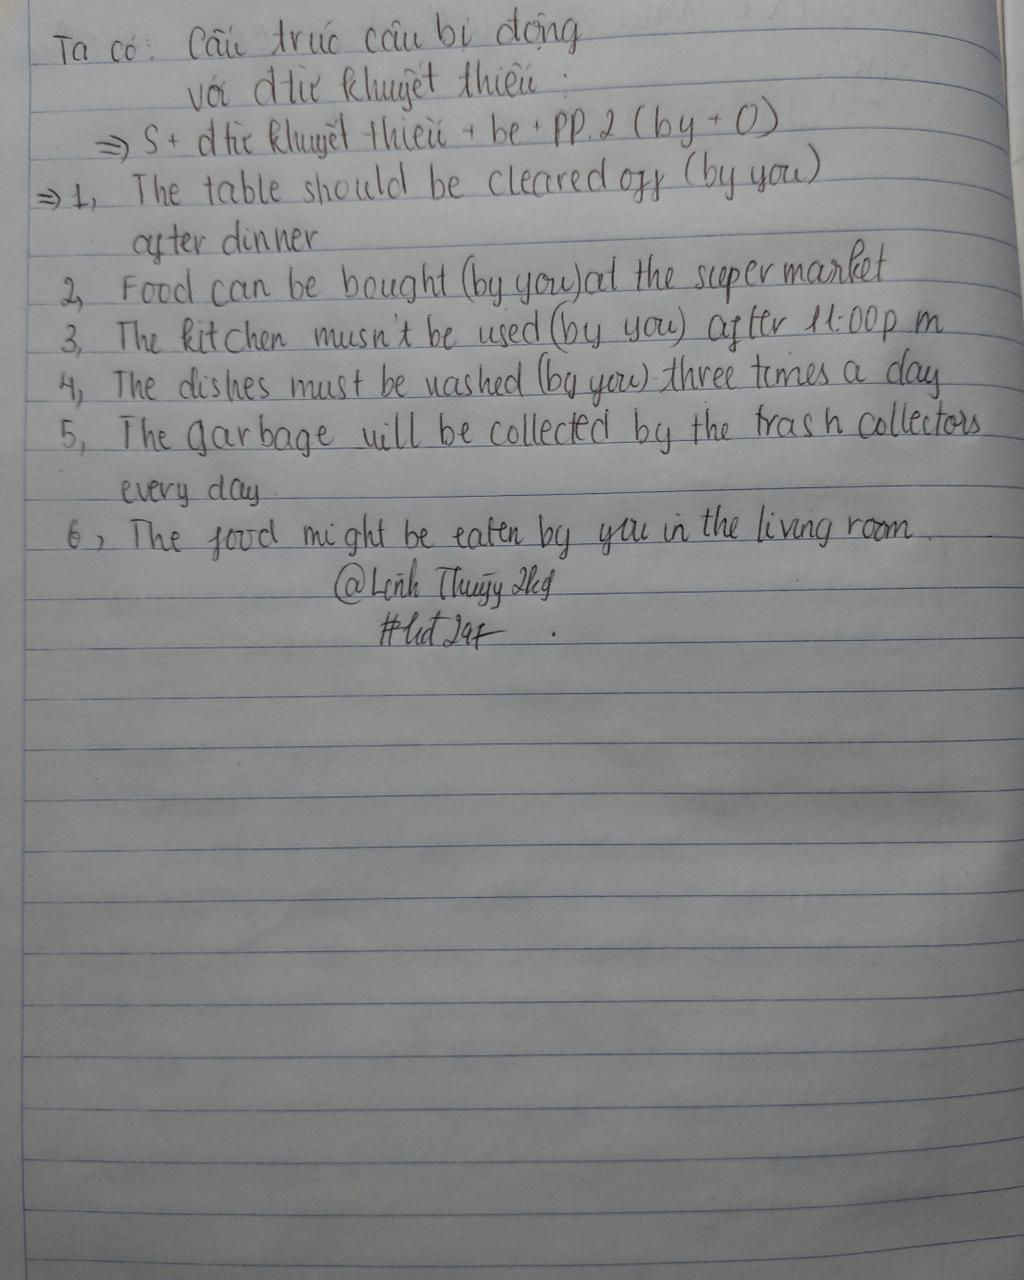 Ta có: Cấu trúc câu bị động
với đtừ khuyết thiếu :
⇒ S + đtừ khuyết thiếu + be + PP.2 (by + O)
⇒ 1, The table should be cleared off (by you)
after dinner
2, Food can be bought (by you) at the supermarket
3, The kitchen musn't be used (by you) after 11:00 p m
4, The dishes must be washed (by you) three times a day
5, The garbage will be collected by the trash collectors
every day
6, The food might be eaten by you in the living room.
@Linh Thuỳy 2kg